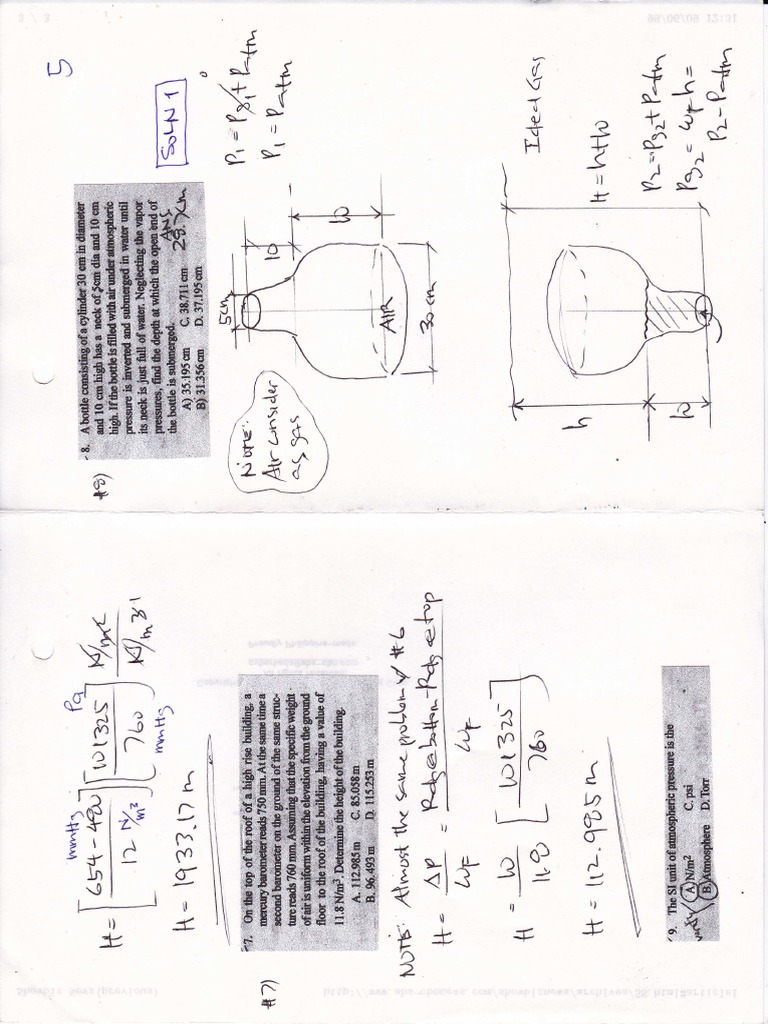 5
#8)
8. A bottle consisting of a cylinder 30 cm in diameter
and 10 cm high has a neck of 5cm dia and 10 cm
high. If the bottle is filled with air under atmospheric
pressure is inverted and submerged in water until
its neck is just full of water. Neglecting the vapor
pressures, find the depth at which the open end of
the bottle is submerged.
ANS
28.7cm
A) 35.195 cm C. 38.711 cm
B) 31.356 cm D. 37.195 cm
SOLN 1
NOTE:
Air consider
as gas
5cm
10
10
AIR
30 cm
P1 = Pg1 + Patm
P1 = Patm
Ideal Gas
h
10
H = h+10
P2 = Pg2 + Patm
Pg2 = ωf h =
P2 - Patm
H = [654-480 / 12 N/m²] [101325 / 760] N/m² / N/m³
mmHg
Pa
mmHg
H = 1933.17 m
#7)
7. On the top of the roof of a high rise building, a
mercury barometer reads 750 mm. At the same time a
second barometer on the ground of the same struc-
ture reads 760 mm. Assuming that the specific weight
of air is uniform within the elevation from the ground
floor to the roof of the building, having a value of
11.8 N/m³. Determine the height of the building.
A. 112.985 m C. 85.058 m
B. 96.493 m D. 115.253 m
NOTE: Almost the same problem w/ #6
H = ΔP / ωf = Rdg @ bottom - Rdg @ top / ωf
H = 10 / 11.80 [101325 / 760]
H = 112.985 m
9. The SI unit of atmospheric pressure is the
A) N/m² C. psi
B. Atmosphere D. Torr